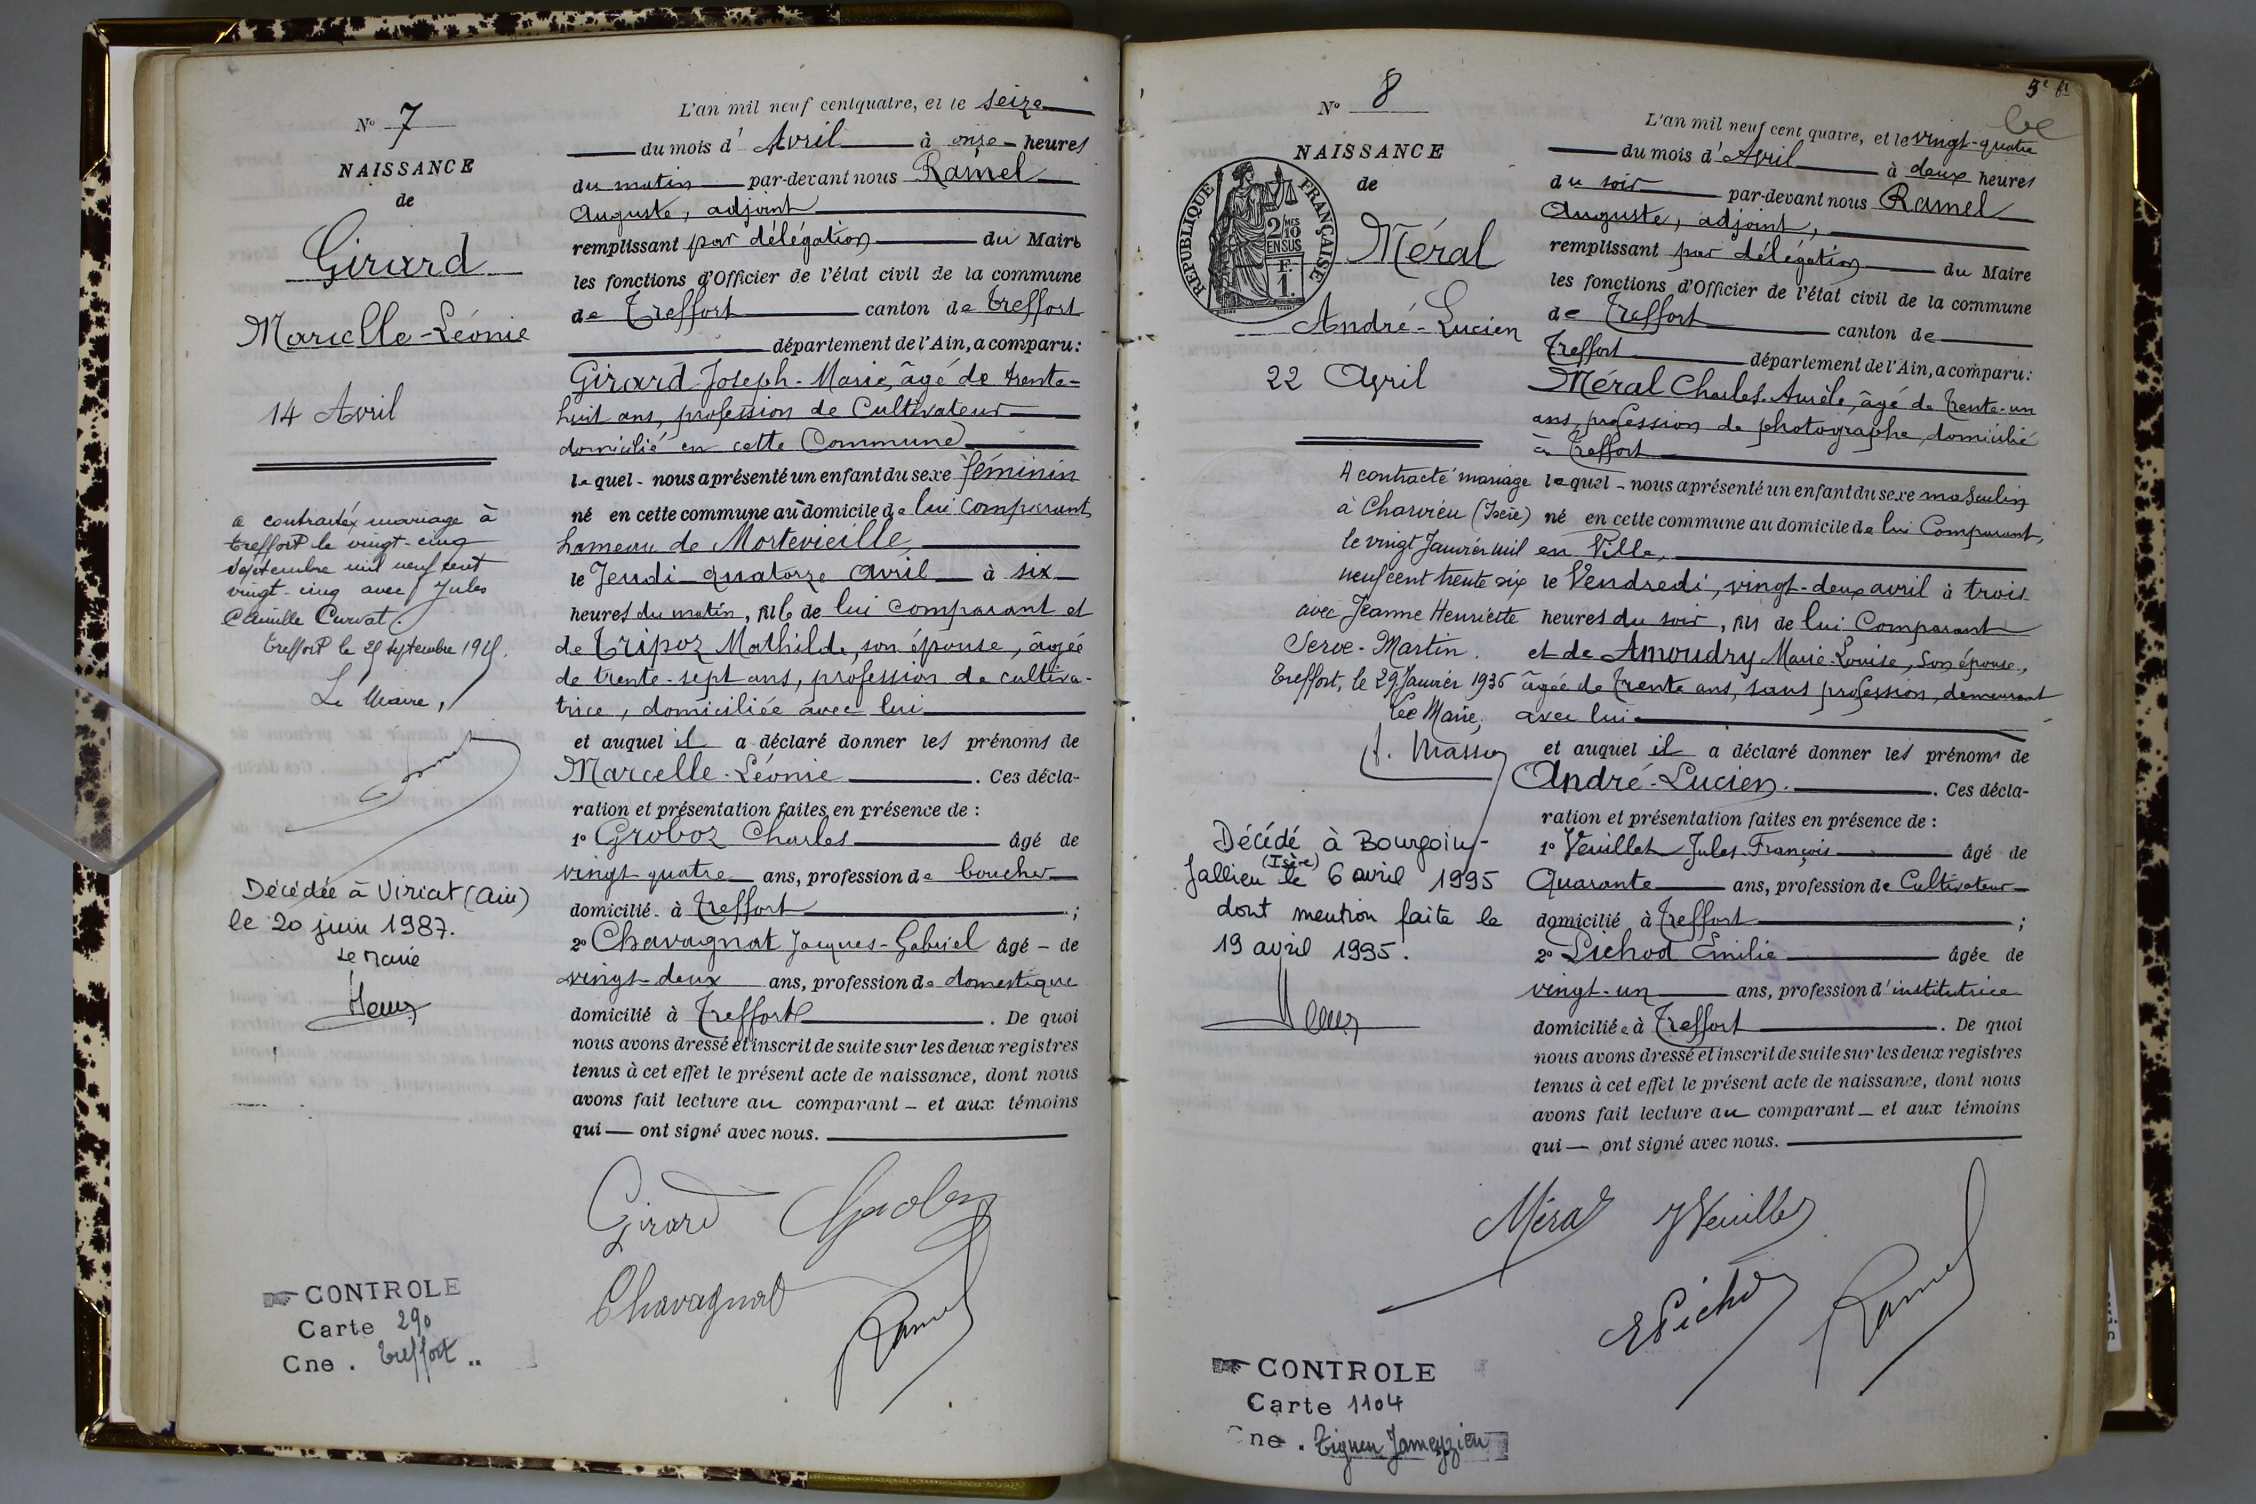 N° 7
NAISSANCE
de
Girard
Marcelle-Léonie
14 Avril
a contracté mariage à
Treffort le vingt-cinq
septembre mil neuf cent
vingt-cinq avec Jules
Camille Curvat.
Treffort le 25 septembre 1925.
Le Maire,
Décédée à Viriat (Ain)
le 20 juin 1987.
Le Maire
CONTROLE
Carte 290
Cne. Treffort
L'an mil neuf cent quatre, et le seize
du mois d'Avril à onze heures
du matin par-devant nous Ramel
Auguste, adjoint
remplissant par délégation du Maire
les fonctions d'Officier de l'état civil de la commune
de Treffort canton de Treffort
département de l'Ain, a comparu:
Girard Joseph-Marie, âgé de trente-
huit ans, profession de Cultivateur
domicilié en cette Commune
lequel nous a présenté un enfant du sexe féminin
né en cette commune au domicile de lui comparant
hameau de Mortevieille,
le Jeudi quatorze avril à six
heures du matin, fille de lui comparant et
de Tripoz Mathilde, son épouse, âgée
de trente-sept ans, profession de cultiva-
trice, domiciliée avec lui
et auquel il a déclaré donner les prénoms de
Marcelle-Léonie. Ces décla-
ration et présentation faites en présence de :
1° Groboz Charles âgé de
vingt quatre ans, profession de boucher
domicilié à Treffort ;
2° Chavagnat Jacques-Gabriel âgé de
vingt-deux ans, profession de domestique
domicilié à Treffort. De quoi
nous avons dressé et inscrit de suite sur les deux registres
tenus à cet effet le présent acte de naissance, dont nous
avons fait lecture au comparant et aux témoins
qui ont signé avec nous.
Girard
Chavagnat Ramel
N° 8
NAISSANCE
de
REPUBLIQUE FRANÇAISE
2/10 MES
EN SUS
F.
1.
Méral
André-Lucien
22 Avril
A contracté mariage
à Charvieu (Isère)
le vingt Janvier mil
neuf cent trente six
avec Jeanne Henriette
Serve-Martin.
Treffort, le 29 Janvier 1936
Le Maire,
Décédé à Bourgoin-
Jallieu (Isère) le 6 avril 1995
dont mention faite le
19 avril 1995.
CONTROLE
Carte 1104
Cne. Tignieu Jameyzieu
L'an mil neuf cent quatre, et le vingt-quatre
du mois d'Avril à deux heures
du soir par-devant nous Ramel
Auguste, adjoint,
remplissant par délégation du Maire
les fonctions d'Officier de l'état civil de la commune
de Treffort canton de
Treffort département de l'Ain, a comparu:
Méral Charles-Aurèle, âgé de trente-un
ans, profession de photographe, domicilié
à Treffort
lequel nous a présenté un enfant du sexe masculin
né en cette commune au domicile de lui Comparant,
en Ville,
le Vendredi, vingt-deux avril à trois
heures du soir, fils de lui Comparant
et de Amoudry Marie-Louise, son épouse,
âgée de trente ans, sans profession, demeurant
avec lui
et auquel il a déclaré donner les prénoms de
André-Lucien. Ces décla-
ration et présentation faites en présence de :
1° Veuillet Jules François âgé de
Quarante ans, profession de Cultivateur
domicilié à Treffort ;
2° Pichod Emilie âgée de
vingt-un ans, profession d'institutrice
domiciliée à Treffort. De quoi
nous avons dressé et inscrit de suite sur les deux registres
tenus à cet effet le présent acte de naissance, dont nous
avons fait lecture au comparant et aux témoins
qui ont signé avec nous.
Méral JVeuillet
EPichod Ramel